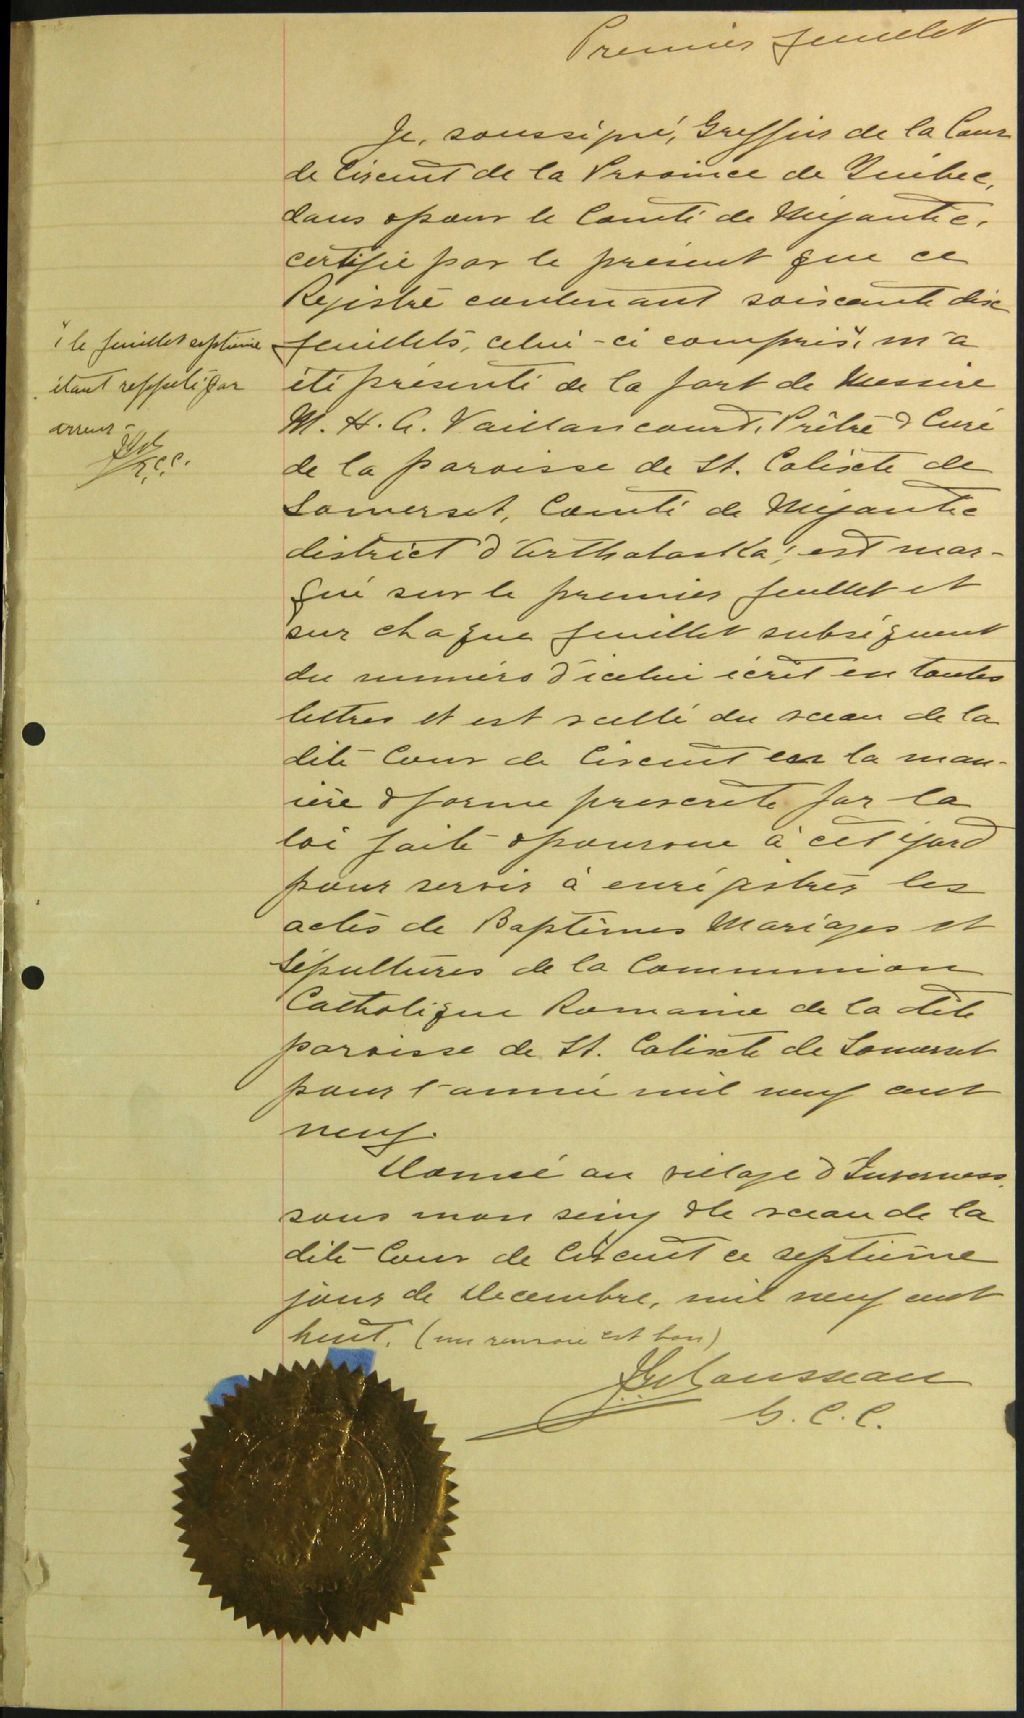 Premier feuillet
Je, soussigné, Greffier de la Cour
de Circuit de la Province de Québec,
dans & pour le Comté de Mégantic,
certifie par le présent que ce
Registre contenant soixante dix
feuillets, celui-ci compris, m'a
été présenté de la part de Messire
M. H. O. Vaillancourt, Prêtre & Curé
de la paroisse de St. Calixte de
Somerset, Comté de Mégantic
district d'Arthabaska, est mar-
qué sur le premier feuillet et
sur chaque feuillet subséquent
du numéro d'icelui écrit en toutes
lettres et est scellé du sceau de la
dite Cour de Circuit en la man-
ière & forme prescrite par la
loi faite & pourvue à cet égard
pour servir à enrégistrer les
actes de Baptêmes Mariages et
Sépultures de la Communion
Catholique Romaine de la dite
paroisse de St. Calixte de Somerset
pour l'année mil neuf cent
neuf.
Donné au village d'Inverness
sous mon seing & le sceau de la
dite Cour de Circuit ce septième
jour de Decembre, mil neuf cent
huit. (un renvoi est bon)
Rousseau
G. C. C.
le feuillet septième
étant reppété par
erreur
G.C.C.